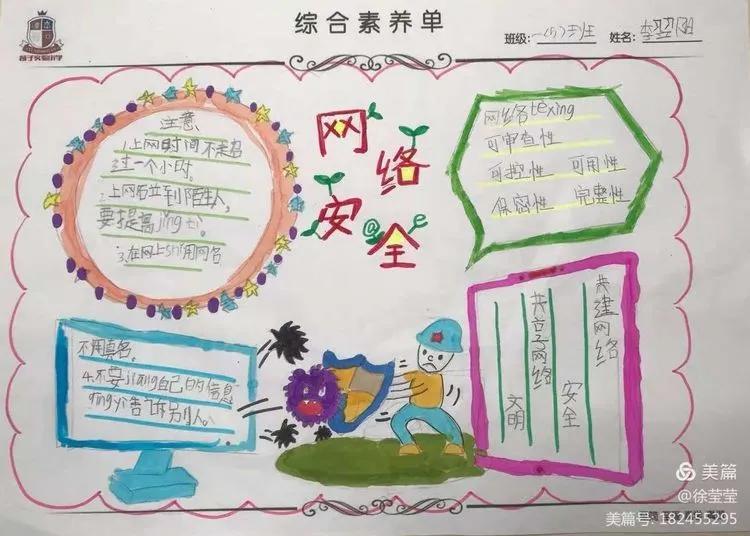 综合素养单
班级:一(5)班 姓名:
网络安全
注意
1.上网时间不超
过一个小时。
2.上网碰到陌生人,
要提高jing
3.在网上shi用网名
不用真名。
4.不要jiang自己的信息
qingyi告诉别人。
网络texing
可审查性
可控性 可用性
保密性 完整性
共建网络
安全
共享网络
文明
美篇
@徐莹莹
美篇号:182455295